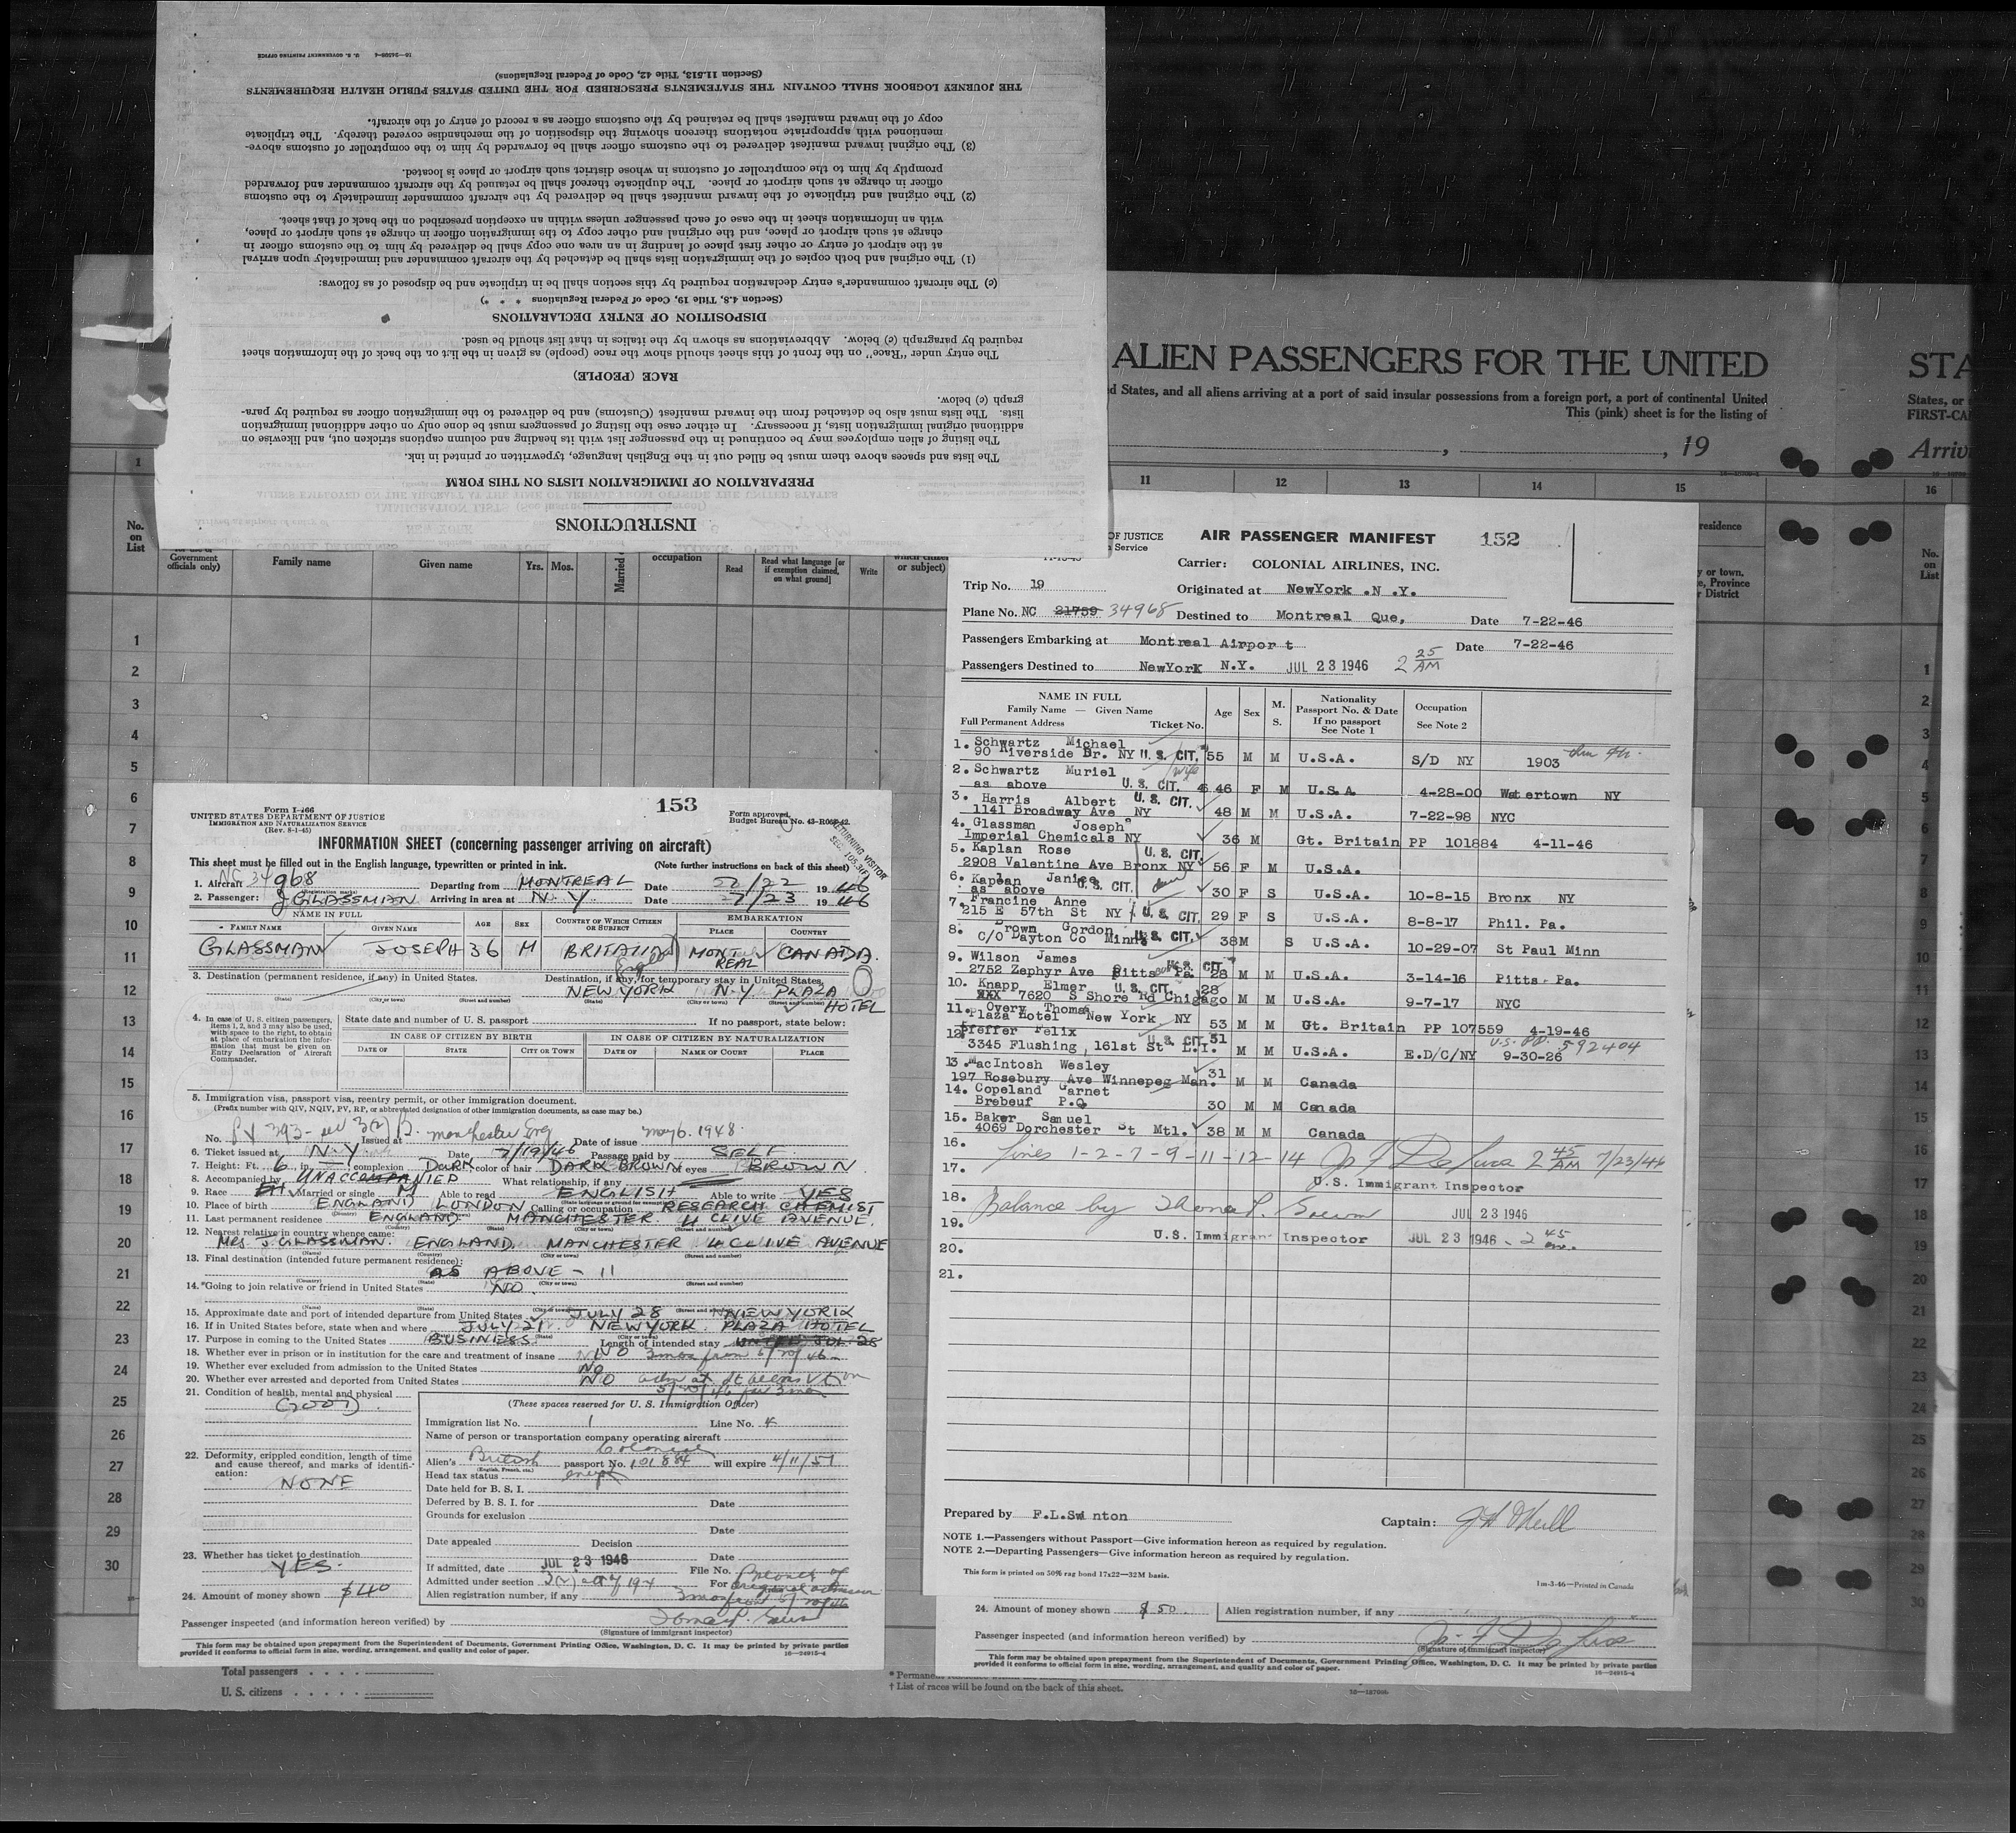 INSTRUCTIONS
PREPARATION OF IMMIGRATION LISTS ON THIS FORM
The lists and spaces above them must be filled out in the English language, typewritten or printed in ink.
The listing of alien employees may be continued in the passenger list with its heading and column captions stricken out, and likewise on
additional original immigration lists, if necessary. In either case the listing of passengers must be done only on other additional immigration
lists. The lists must also be detached from the inward manifest (Customs) and be delivered to the immigration officer as required by para-
graph (c) below.
RACE (PEOPLE)
The entry under "Race" on the front of this sheet should show the race (people) as given in the list on the back of the information sheet
required by paragraph (c) below. Abbreviations as shown by the italics in that list should be used.
DISPOSITION OF ENTRY DECLARATIONS
(Section 4.8, Title 19, Code of Federal Regulations * * *)
(c) The aircraft commander's entry declaration required by this section shall be in triplicate and be disposed of as follows:
(1) The original and both copies of the immigration lists shall be detached by the aircraft commander and immediately upon arrival
at the airport of entry or other first place of landing in an area one copy shall be delivered by him to the customs officer in
charge at such airport or place, and the original and other copy to the immigration officer in charge at such airport or place,
with an information sheet in the case of each passenger unless within an exception prescribed on the back of that sheet.
(2) The original and triplicate of the inward manifest shall be delivered by the aircraft commander immediately to the customs
officer in charge at such airport or place. The duplicate thereof shall be retained by the aircraft commander and forwarded
promptly by him to the comptroller of customs in whose district such airport or place is located.
(3) The original inward manifest delivered to the customs officer shall be forwarded by him to the comptroller of customs above-
mentioned with appropriate notations thereon showing the disposition of the merchandise covered thereby. The triplicate
copy of the inward manifest shall be retained by the customs officer as a record of entry of the aircraft.
THE JOURNEY LOGBOOK SHALL CONTAIN THE STATEMENTS PRESCRIBED FOR THE UNITED STATES PUBLIC HEALTH REQUIREMENTS
(Section 11.513, Title 42, Code of Federal Regulations)
U. S. GOVERNMENT PRINTING OFFICE
ALIEN PASSENGERS FOR THE UNITED STA
d States, and all aliens arriving at a port of said insular possessions from a foreign port, a port of continental United States, or
This (pink) sheet is for the listing of FIRST-CA
, 19 Arriv
1 11 12 13 14 15 16
No. on List
Government officials only)
Family name
Given name
Yrs. Mos.
Married
occupation
Read
Read what language [or if exemption claimed, on what ground]
Write
or subject)
Form I-466
UNITED STATES DEPARTMENT OF JUSTICE
IMMIGRATION AND NATURALIZATION SERVICE
(Rev. 8-1-45)
153
Form approved.
Budget Bureau No. 43-R065-42.
RETURNING VISITOR
INFORMATION SHEET (concerning passenger arriving on aircraft)
This sheet must be filled out in the English language, typewritten or printed in ink. (Note further instructions on back of this sheet)
1. Aircraft NC 34968 Departing from MONTREAL Date 7/22 1946
2. Passenger: J GLASSMAN Arriving in area at N.Y. Date 7/23 1946
NAME IN FULL AGE SEX COUNTRY OF WHICH CITIZEN OR SUBJECT EMBARKATION
FAMILY NAME GIVEN NAME PLACE COUNTRY
GLASSMAN JOSEPH 36 M BRITAIN MONTREAL CANADA
3. Destination (permanent residence, if any) in United States. Destination, if any, for temporary stay in United States,
NEW YORK N-Y PLAZA HOTEL
(State) (City or town) (Street and number)
4. In case of U. S. citizen passengers, items 1, 2, and 3 may also be used, with space to the right, to obtain at place of embarkation the information that must be given on Entry Declaration of Aircraft Commander.
State date and number of U. S. passport If no passport, state below:
IN CASE OF CITIZEN BY BIRTH IN CASE OF CITIZEN BY NATURALIZATION
DATE OF STATE CITY OR TOWN DATE OF NAME OF COURT PLACE
5. Immigration visa, passport visa, reentry permit, or other immigration document.
(Prefix number with QIV, NQIV, PV, RP, or abbreviated designation of other immigration documents, as case may be.)
No. PV 393 - sec 3(2) Issued at Manchester Eng Date of issue May 6. 1948
6. Ticket issued at N-Y Date 7/19/46 Passage paid by SELF
7. Height: Ft. 6 in. complexion DARK color of hair DARK BROWN eyes BROWN
8. Accompanied by UNACCOMPANIED What relationship, if any
9. Race Married or single M Able to read ENGLISH Able to write YES
10. Place of birth ENGLAND LONDON Calling or occupation RESEARCH CHEMIST
11. Last permanent residence ENGLAND MANCHESTER 4 CLIVE AVENUE
12. Nearest relative in country whence came:
MRS J. GLASSMAN. ENGLAND. MANCHESTER 4 CLIVE AVENUE
13. Final destination (intended future permanent residence):
AS ABOVE - 11
14. *Going to join relative or friend in United States NO.
15. Approximate date and port of intended departure from United States JULY 28 NEW YORK
16. If in United States before, state when and where JULY 21 NEW YORK. PLAZA HOTEL
17. Purpose in coming to the United States BUSINESS. Length of intended stay UNTIL JUL 28
18. Whether ever in prison or in institution for the care and treatment of insane NO 3 mos from 5/20/46
19. Whether ever excluded from admission to the United States NO
20. Whether ever arrested and deported from United States NO adm at St Albans Vt on
5/20/46 for 3 mos
21. Condition of health, mental and physical
GOOD.
22. Deformity, crippled condition, length of time and cause thereof, and marks of identification:
NONE
23. Whether has ticket to destination
YES
24. Amount of money shown $40
(These spaces reserved for U. S. Immigration Officer)
Immigration list No. 1 Line No. 4
Name of person or transportation company operating aircraft
Colonial
Alien's British passport No. 101884 will expire 4/11/51
(English, French, etc.)
Head tax status exempt
Date held for B. S. I.
Deferred by B. S. I. for Date
Grounds for exclusion
Date
Date appealed Decision
Date
If admitted, date JUL 23 1946 File No.
Admitted under section 3(2) act of 1924 For
Alien registration number, if any 3 mos from 5/20/46
Passenger inspected (and information hereon verified) by
(Signature of immigrant inspector)
This form may be obtained upon prepayment from the Superintendent of Documents, Government Printing Office, Washington, D. C. It may be printed by private parties
provided it conforms to official form in size, wording, arrangement, and quality and color of paper. 16—24915-4
Total passengers
U. S. citizens
OF JUSTICE
n Service
AIR PASSENGER MANIFEST 152
Carrier: COLONIAL AIRLINES, INC.
Trip No. 19 Originated at NewYork .N .Y.
Plane No. NC 21759 34968 Destined to Montreal Que, Date 7-22-46
Passengers Embarking at Montreal Airport Date 7-22-46
Passengers Destined to NewYork N.Y. JUL 23 1946 2 25 AM
NAME IN FULL
Family Name — Given Name
Full Permanent Address Ticket No.
Age Sex M. S. Nationality Passport No. & Date If no passport See Note 1 Occupation See Note 2
1. Schwartz Michael
90 Riverside Dr. NY U. S. CIT. 55 M M U.S.A. S/D NY 1903
2. Schwartz Muriel wife
as above U. S. CIT. 46 F M U.S.A 4-28-00 Watertown NY
3. Harris Albert U. S. CIT.
1141 Broadway Ave NY 48 M M U.S.A. 7-22-98 NYC
4. Glassman Joseph
Imperial Chemicals NY 36 M Gt. Britain PP 101884 4-11-46
5. Kaplan Rose U. S. CIT.
2908 Valentine Ave Bronx NY 56 F M U.S.A.
6. Kaplan Janice
as above U. S. CIT. 30 F S U.S.A. 10-8-15 Bronx NY
7. Francine Anne
215 E 57th St NY U. S. CIT. 29 F S U.S.A. 8-8-17 Phil. Pa.
8. Brown Gordon
C/O Dayton Co Minn U. S. CIT. 38 M S U.S.A. 10-29-07 St Paul Minn
9. Wilson James
2752 Zephyr Ave Pitts Pa. U.S. CIT 28 M M U.S.A. 3-14-16 Pitts- Pa.
10. Knapp Elmer U. S. CIT. 28
XXX 7620 S Shore Rd Chicago M M U.S.A. 9-7-17 NYC
11. Overy Thomas
Plaza Hotel New York NY 53 M M Gt. Britain PP 107559 4-19-46
12. Pfeffer Felix U. S. CIT. 51
3345 Flushing, 161st St L.I. M M U.S.A. E.D/C/NY 9-30-26 U.S. PP. 592404
13. MacIntosh Wesley
197 Rosebury Ave Winnepeg Man. 31 M M Canada
14. Copeland Garnet
Brebeuf P.Q 30 M M Canada
15. Baker Samuel
4069 Dorchester St Mtl. 38 M M Canada
16.
17. Lines 1-2-7-9-11-12-14 2 45 AM 7/23/46
U.S. Immigrant Inspector
18. Balance by JUL 23 1946
19.
U.S. Immigrant Inspector JUL 23 1946 - 2 45
20.
21.
Prepared by F.L.Swinton Captain:
NOTE 1.—Passengers without Passport—Give information hereon as required by regulation.
NOTE 2.—Departing Passengers—Give information hereon as required by regulation.
This form is printed on 50% rag bond 17x22—32M basis. 1m-3-46—Printed in Canada
24. Amount of money shown $ 50. Alien registration number, if any
Passenger inspected (and information hereon verified) by
(Signature of immigrant inspector)
This form may be obtained upon prepayment from the Superintendent of Documents, Government Printing Office, Washington, D. C. It may be printed by private parties
provided it conforms to official form in size, wording, arrangement, and quality and color of paper. 16—24915-4
* Permanent
† List of races will be found on the back of this sheet.